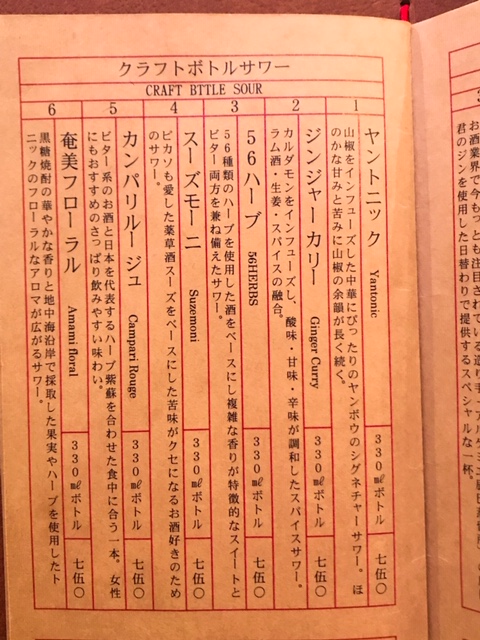 クラフトボトルサワー
CRAFT BTTLE SOUR
1
ヤントニック Yantonic 330㎖ボトル 七伍〇
山椒をインフューズした中華にぴったりのヤンボウのシグネチャーサワー。ほ
のかな甘みと苦みに山椒の余韻が長く続く。
2
ジンジャーカリー Ginger Curry 330㎖ボトル 七伍〇
カルダモンをインフューズし、酸味・甘味・辛味が調和したスパイスサワー。
ラム酒・生姜・スパイスの融合。
3
56ハーブ 56HERBS 330㎖ボトル 七伍〇
56種類のハーブを使用した酒をベースにし複雑な香りが特徴的なスイートと
ビター両方を兼ね備えたサワー。
4
スーズモーニ Suzemoni 330㎖ボトル 七伍〇
ピカソも愛した薬草酒スーズをベースにした苦味がクセになるお酒好きのため
のサワー。
5
カンパリルージュ Campari Rouge 330㎖ボトル 七伍〇
ビター系のお酒と日本を代表するハーブ紫蘇を合わせた食中に合う一本。女性
にもおすすめのさっぱり飲みやすい味わい。
6
奄美フローラル Amami floral 330㎖ボトル 七伍〇
黒糖焼酎の華やかな香りと地中海沿岸で採取した果実やハーブを使用したト
ニックのフローラルなアロマが広がるサワー。
お酒業界で今もっとも注目されている造り手
君のジンを使用した日替わりで提供するスペシャルな一杯。